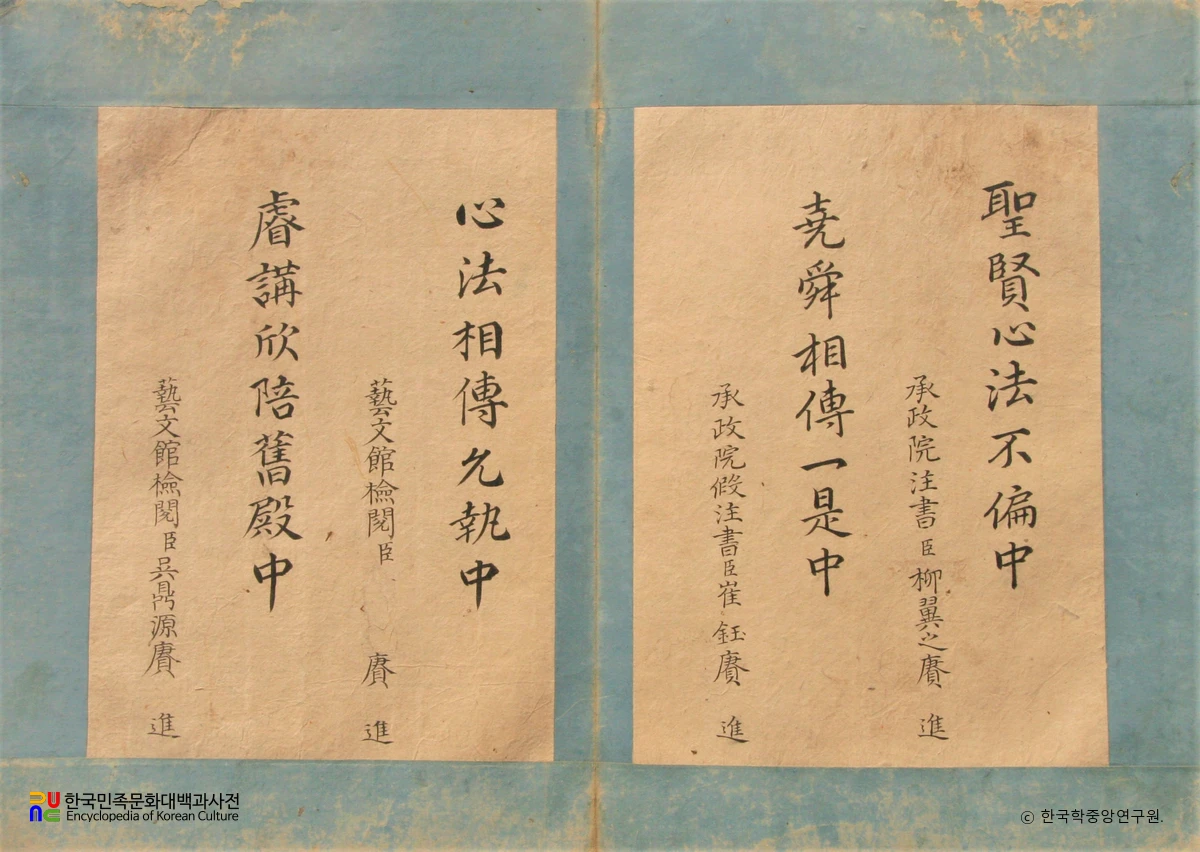 聖賢心法不偏中
承政院注書臣柳翼之賡 進
堯舜相傳一是中
承政院假注書臣崔鈺賡 進
心法相傳允執中
藝文館檢閱臣 賡 進
睿講欣陪舊殿中
藝文館檢閱臣吳鼎源賡 進
한국민족문화대백과사전
Encyclopedia of Korean Culture
ⓒ 한국학중앙연구원.